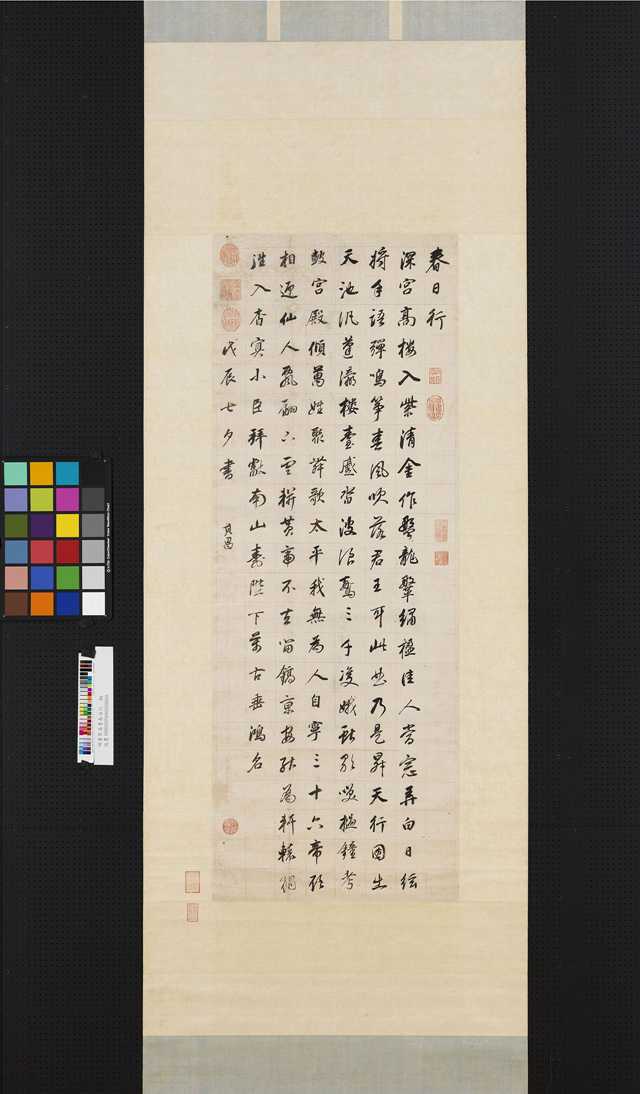 春日行
深宮高樓入紫清金作龍盤繡楹佳人當窗弄白日絃
將手語彈鳴箏春風吹落君王耳此曲乃是昇天行因出
天池汎蓬瀛樓臺蹙沓波浪驚三千雙娥獻歌笑撾鐘考
鼓宮殿傾萬姓聚舞歌太平我無為人自寧三十六帝欲
相迎仙人飄翩下雲軿黃帝不去留鎬京安能為軒轅獨
往入杳冥小臣拜獻南山壽陛下萬古垂鴻名
戊辰七夕書
其昌